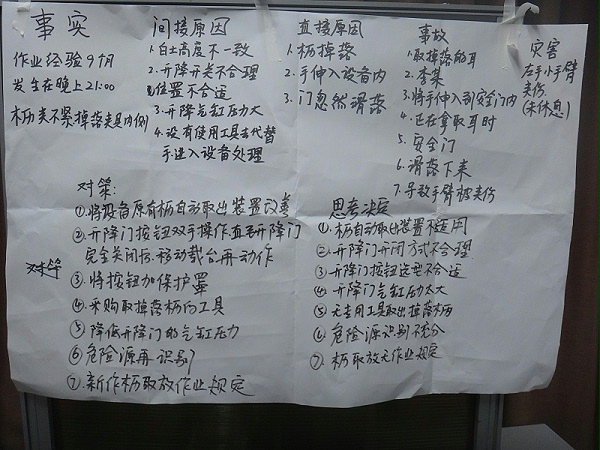 事实
作业经验9个月
发生在晚上21:00
柄夹不紧掉落夹具内侧
间接原因
1.台面高度不一致
2.升降开关不合理
位置不合适
3.升降气缸压力大
4.没有使用工具去代替
手进入设备处理
直接原因
1.柄掉落
2.手伸入设备内
3.门忽然滑落
事故
1.取掉落的耳
2.李某
3.将手伸入到安全门内
4.正在拿取耳时
5.安全门
6.滑落下来
7.导致手臂被夹伤
灾害
左手小手臂
夹伤
(未休息)
对策:
①将设备原有柄自动取出装置改善
②升降门按钮双手操作直至升降门
完全关闭后,移动载台再动作
对策
③将按钮加保护罩
④采购取掉落柄的工具
⑤降低升降门的气缸压力
⑥危险源再识别
⑦新作柄取放作业规定
思考决定
①柄自动取出装置不适用
②升降门开闭方式不合理
③升降门按钮选型不合适
④升降门气缸压力太大
⑤无专用工具取出掉落柄
⑥危险源识别不充分
⑦柄取放无作业规定